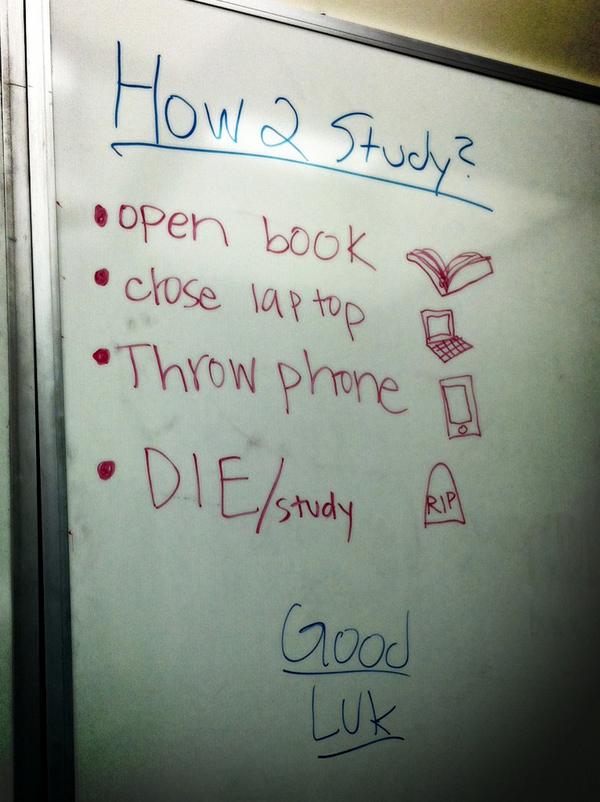 How 2 Study?
• open book
• close laptop
• Throw phone
• DIE/study
RIP
Good
Luk